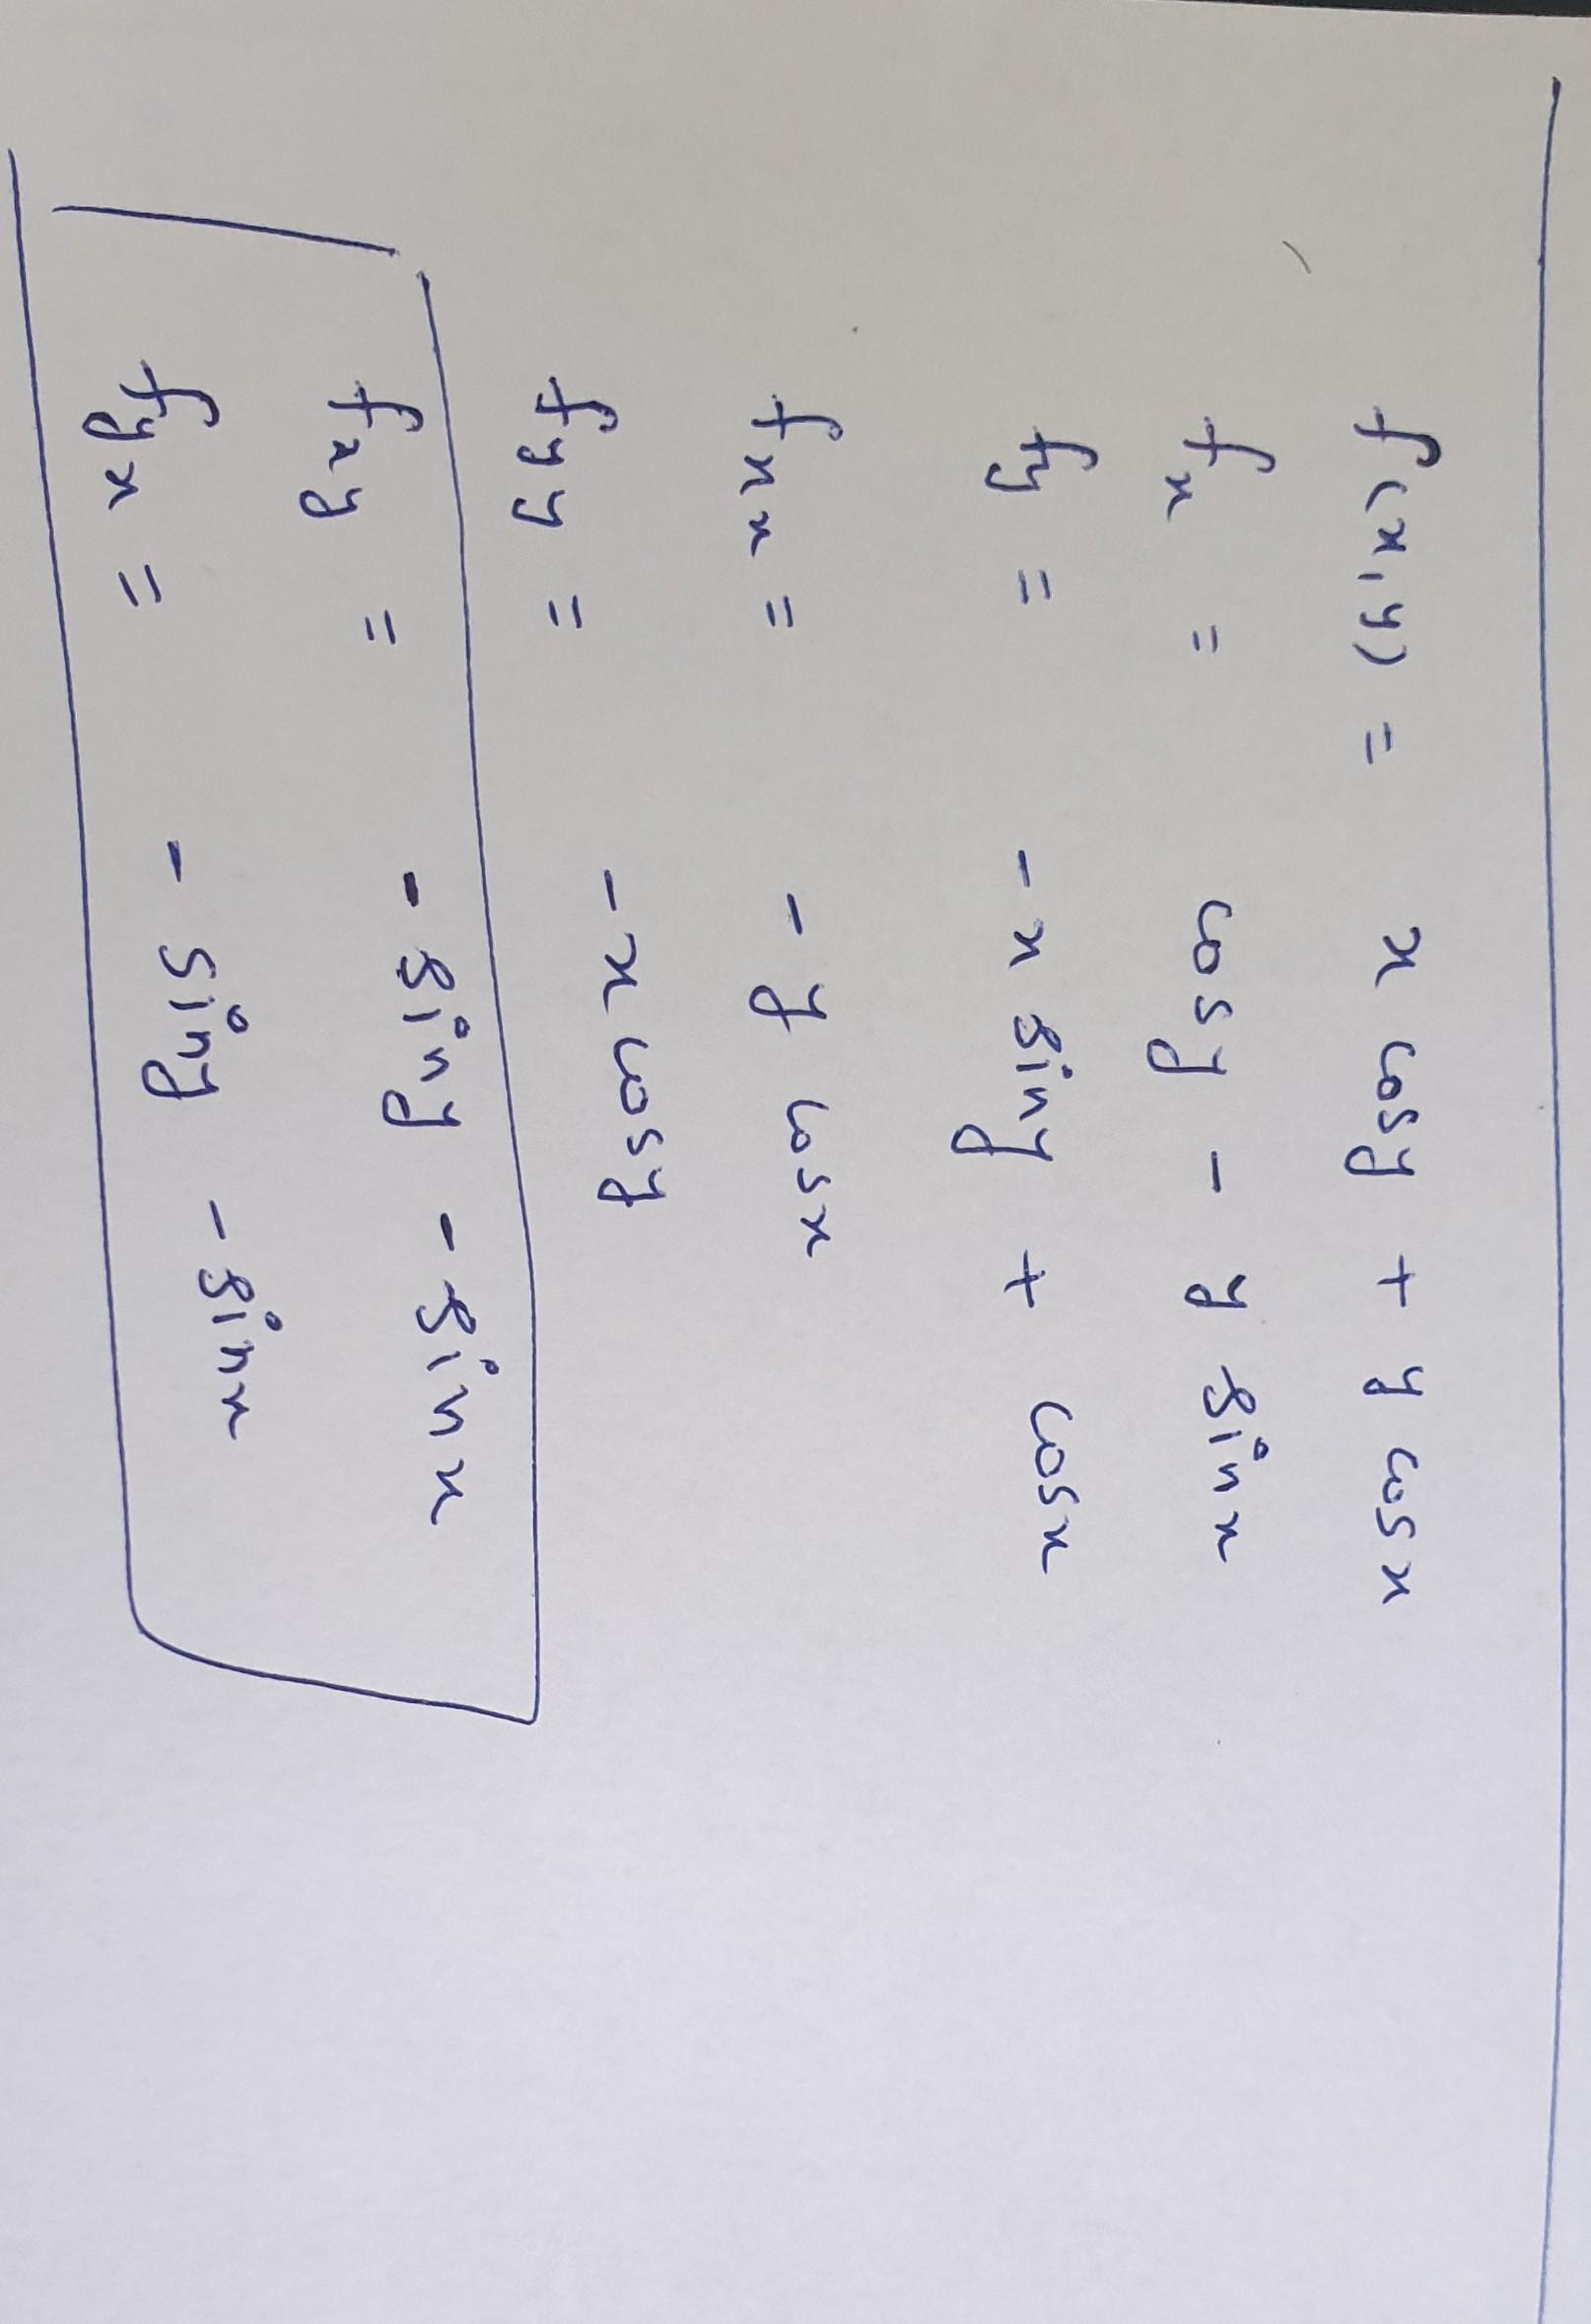 f(x,y) = x cosy + y cosx
fx = cosy - y sinx
fy = -x siny + cosx
fxx = - y cosx
fyy = -x cosy
fxy = - siny - sinx
fyx = - siny - sinx